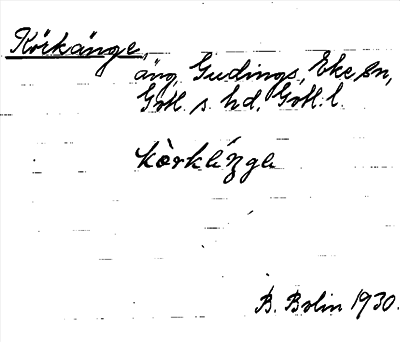 Körkänge,
äng, Gudings, Eke sn,
Gotl. s. hd. Gotl. l.
B. Bolin 1930.